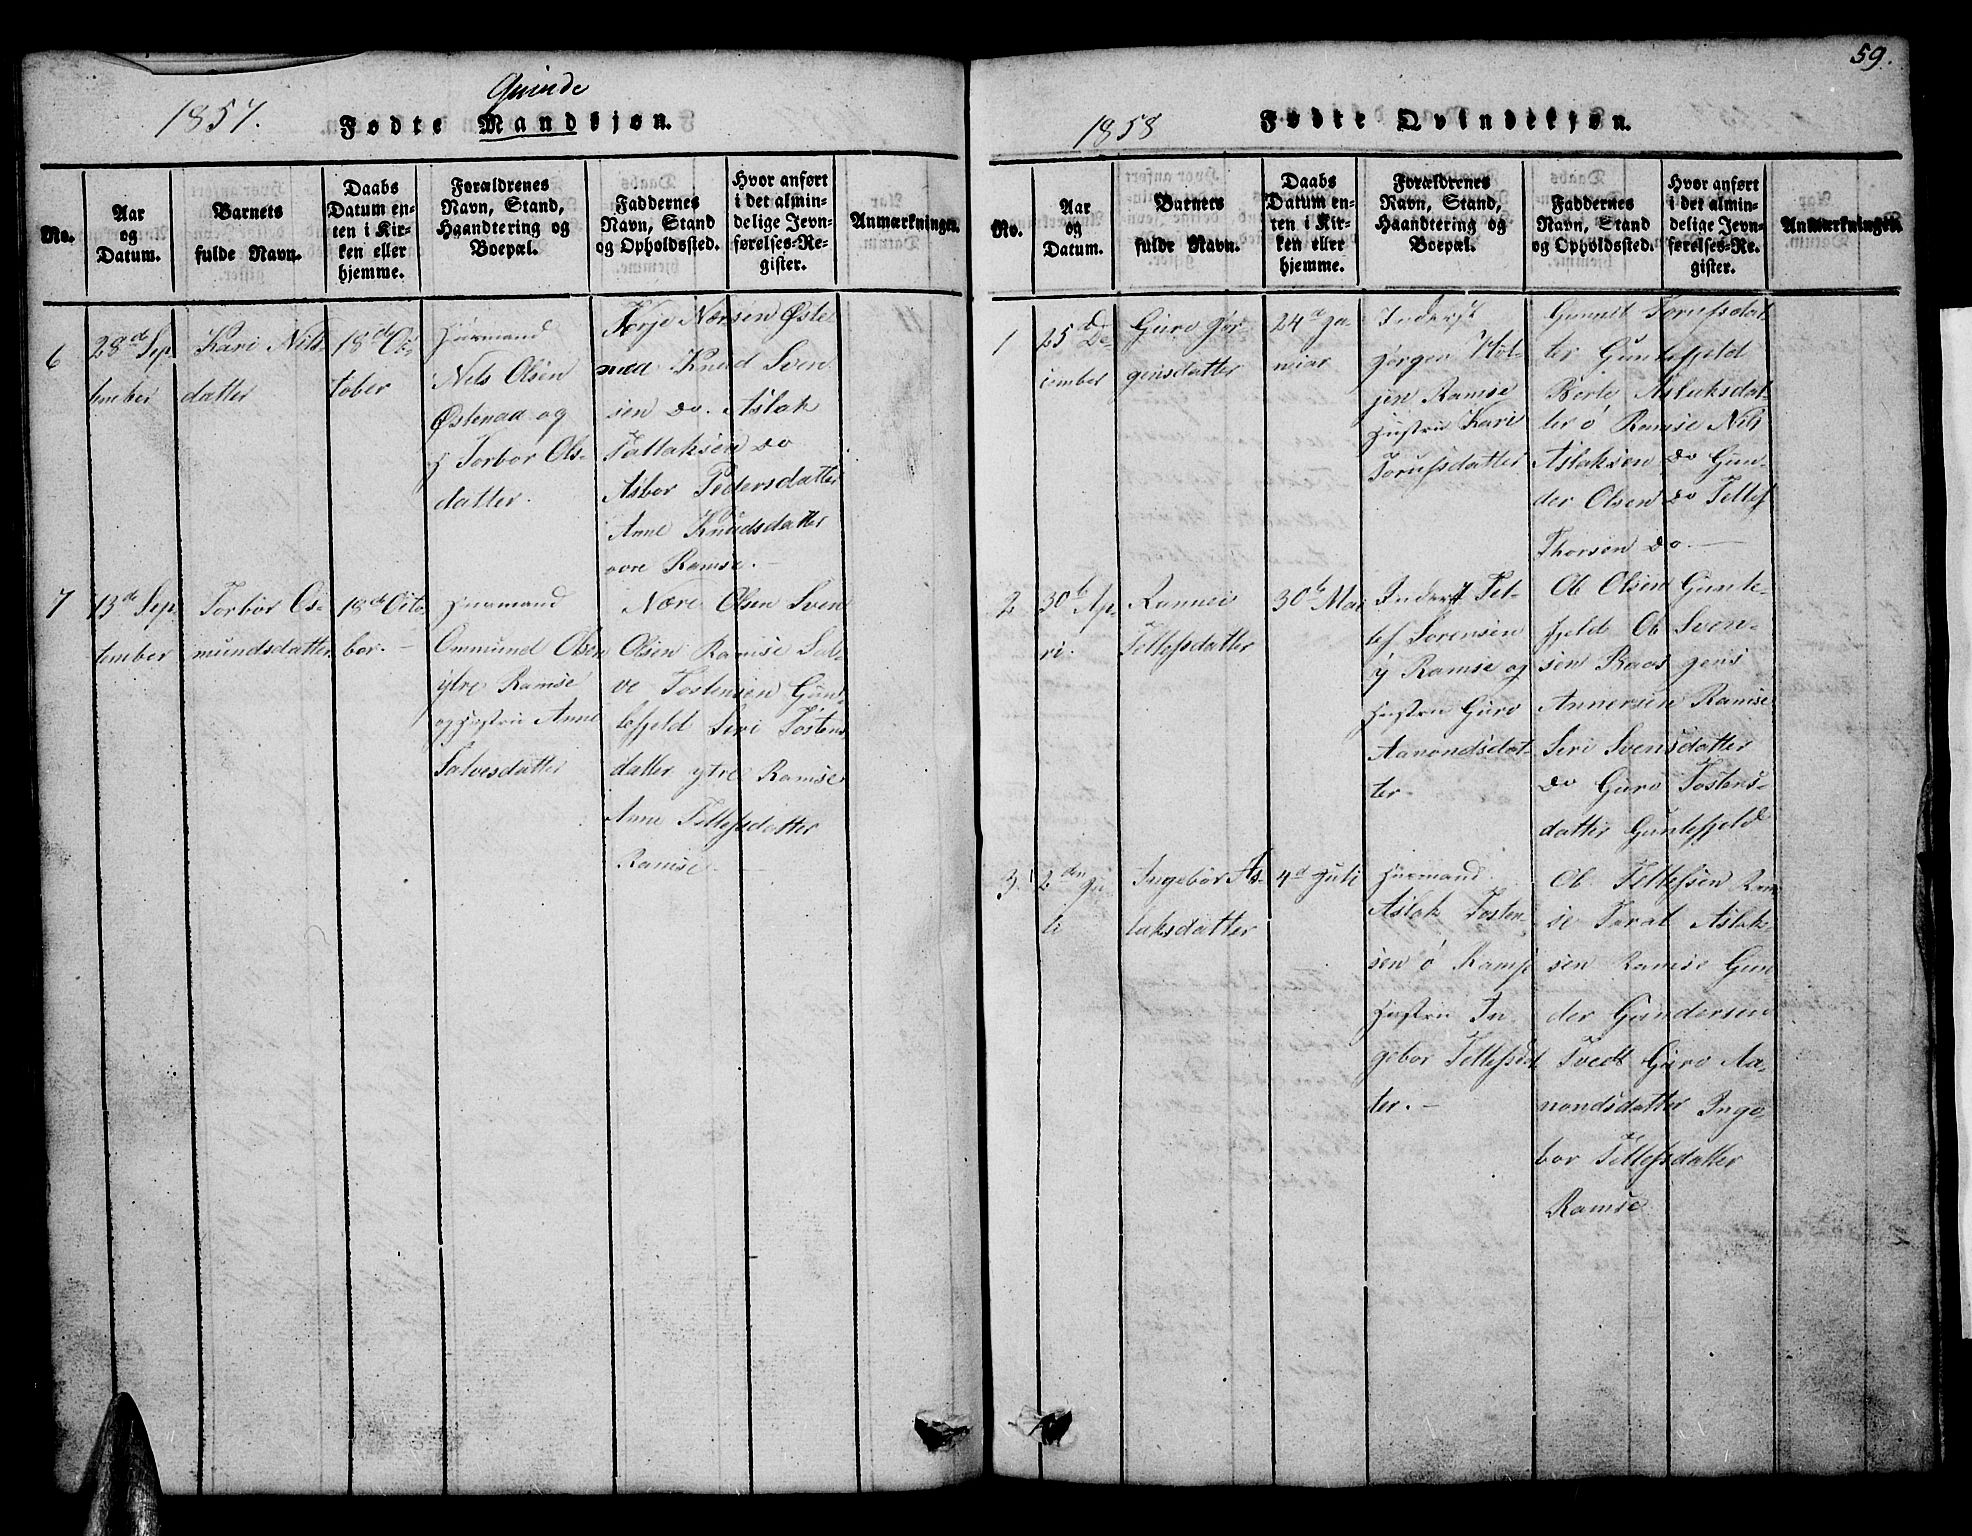 59.
1857.
Qvinde
Fødte Mandkjøn.
No.
Aar
og
Datum.
Barnets
fulde Navn.
Daabs
Datum en-
ten i Kir-
ken eller
hjemme.
Forældrenes
Navn, Stand,
Haandtering og
Boepæl.
Faddernes
Navn, Stand
og Opholdssted.
Hvor anført
i det almin-
delige Jevn-
førelses-Re-
gister.
Anmærkninger.
6
28de Sep
tember
Kari Nils
datter
18de Oc
tober
Huusmand
Nils Olsen
Østenaa og
H Torbor Ols-
datter.
Terje Nærsen Øste
naa Knud Sven
sen Do. Aslak
Tallaksen Do
Asbor Pedersdatter
Anne Knudsdatter
øvre Ramse.
7
13de Sep
tember
Torbor Os-
mundsdatter
18de Octo
ber. –
Huusmand
Ommund Olsen
ytre Ramse
og Hustru Anne
Salvesdatter
Nære Olsen Sven
Olsen Ramse Sal-
ve Tostensen Gun
lefjeld Siri Tostens
datter ytre Ramse
Anne Tellefsdatter
Ramse
1858
Fødte Qvindekjøn.
No.
Aar
og
Datum.
Barnets
fulde Navn.
Daabs
Datum en-
ten i Kir-
ken eller
hjemme.
Forældrenes
Navn, Stand,
Haandtering og
Boepæl.
Faddernes
Navn, Stand
og Opholdssted.
Hvor anført
i det almin-
delige Jevn-
førelses-Re-
gister.
Anmærkninger.
1
25 De-
cember
Guro Jør-
gensdatter
24d Ja-
nuar
Inderst
Jørgen
Ramse
Hustru Kari
Torufsdatter
Gunnil Torufsdat
ter Gunlefjeld
Berte Aslaksdat-
ter ø Ramse Nils
Aslaksen Do Gun-
der Olsen Do Tellef
Thorsen Do. –
2
30te Ap
ri.
Rannei
Tellefsdatter
30te Mai
Inderst Tel-
lef Sørensen
y Ramse og
Hustru Guro
Aanondsdat-
ter.
Ob Olsen Gunle-
fjeld Ob Sven-
sen Raas Jens
Annersen Ramse
Siri Svensdatter
Do Guro Tostens-
datter Gunlefjeld
3.
2den Ju
li
Ingebor As-
laksdatter
4d Juli
Huusmand
Aslak Tosten-
sen ø Rams
Hustru In
gebor Tellefsdat
ter. –
Ob Tellefsen Ram
se Toral Aslak-
sen Ramse Gun
der Gundersen
Tvedt Guro Aa-
nondsdatter Inge-
bor Tellefsdatter
Ramse